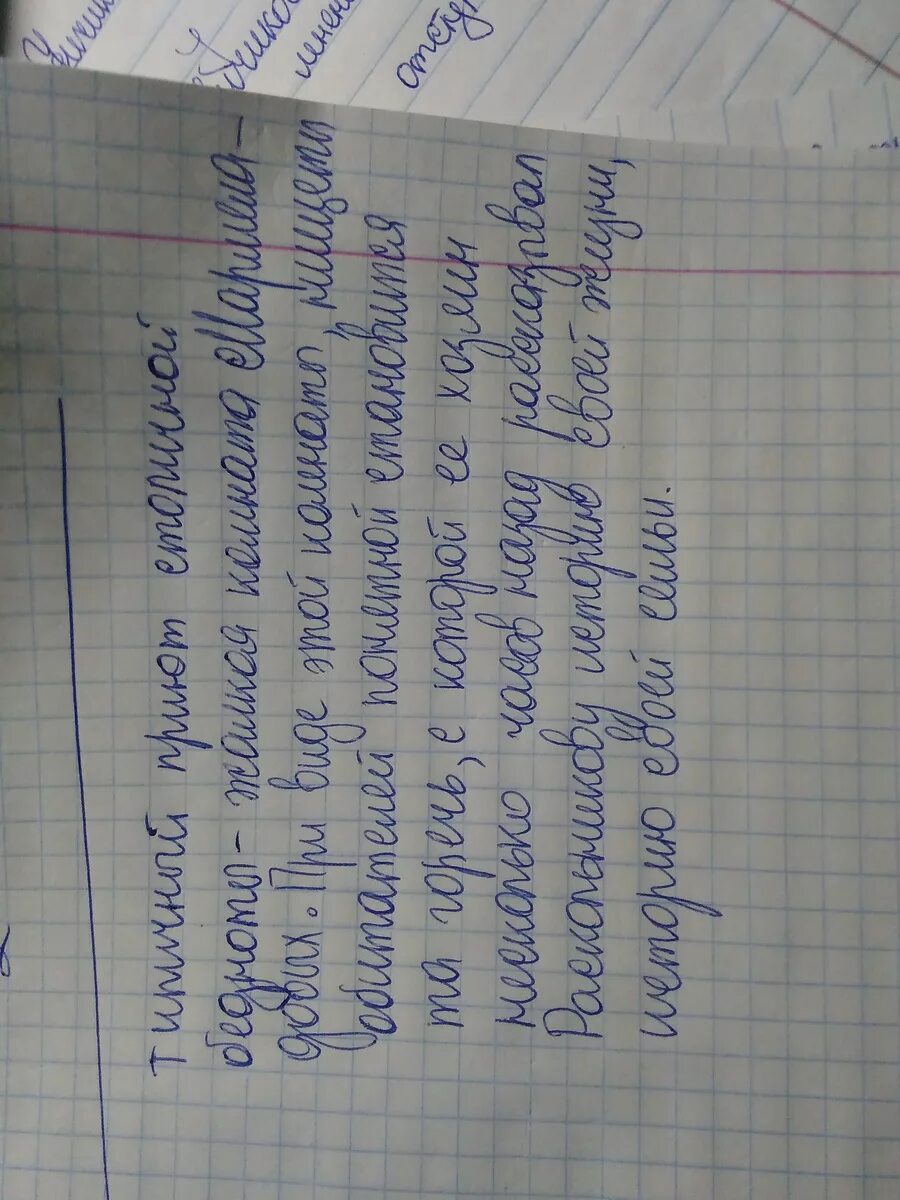 типичный приют столичной
бедноты - жалкая комната Мармела-
довых. При виде этой комнаты, нищеты
обитателей понятной становится
та горечь, с которой ее хозяин
несколько часов назад рассказывал
Раскольникову историю своей жизни,
историю своей семьи.